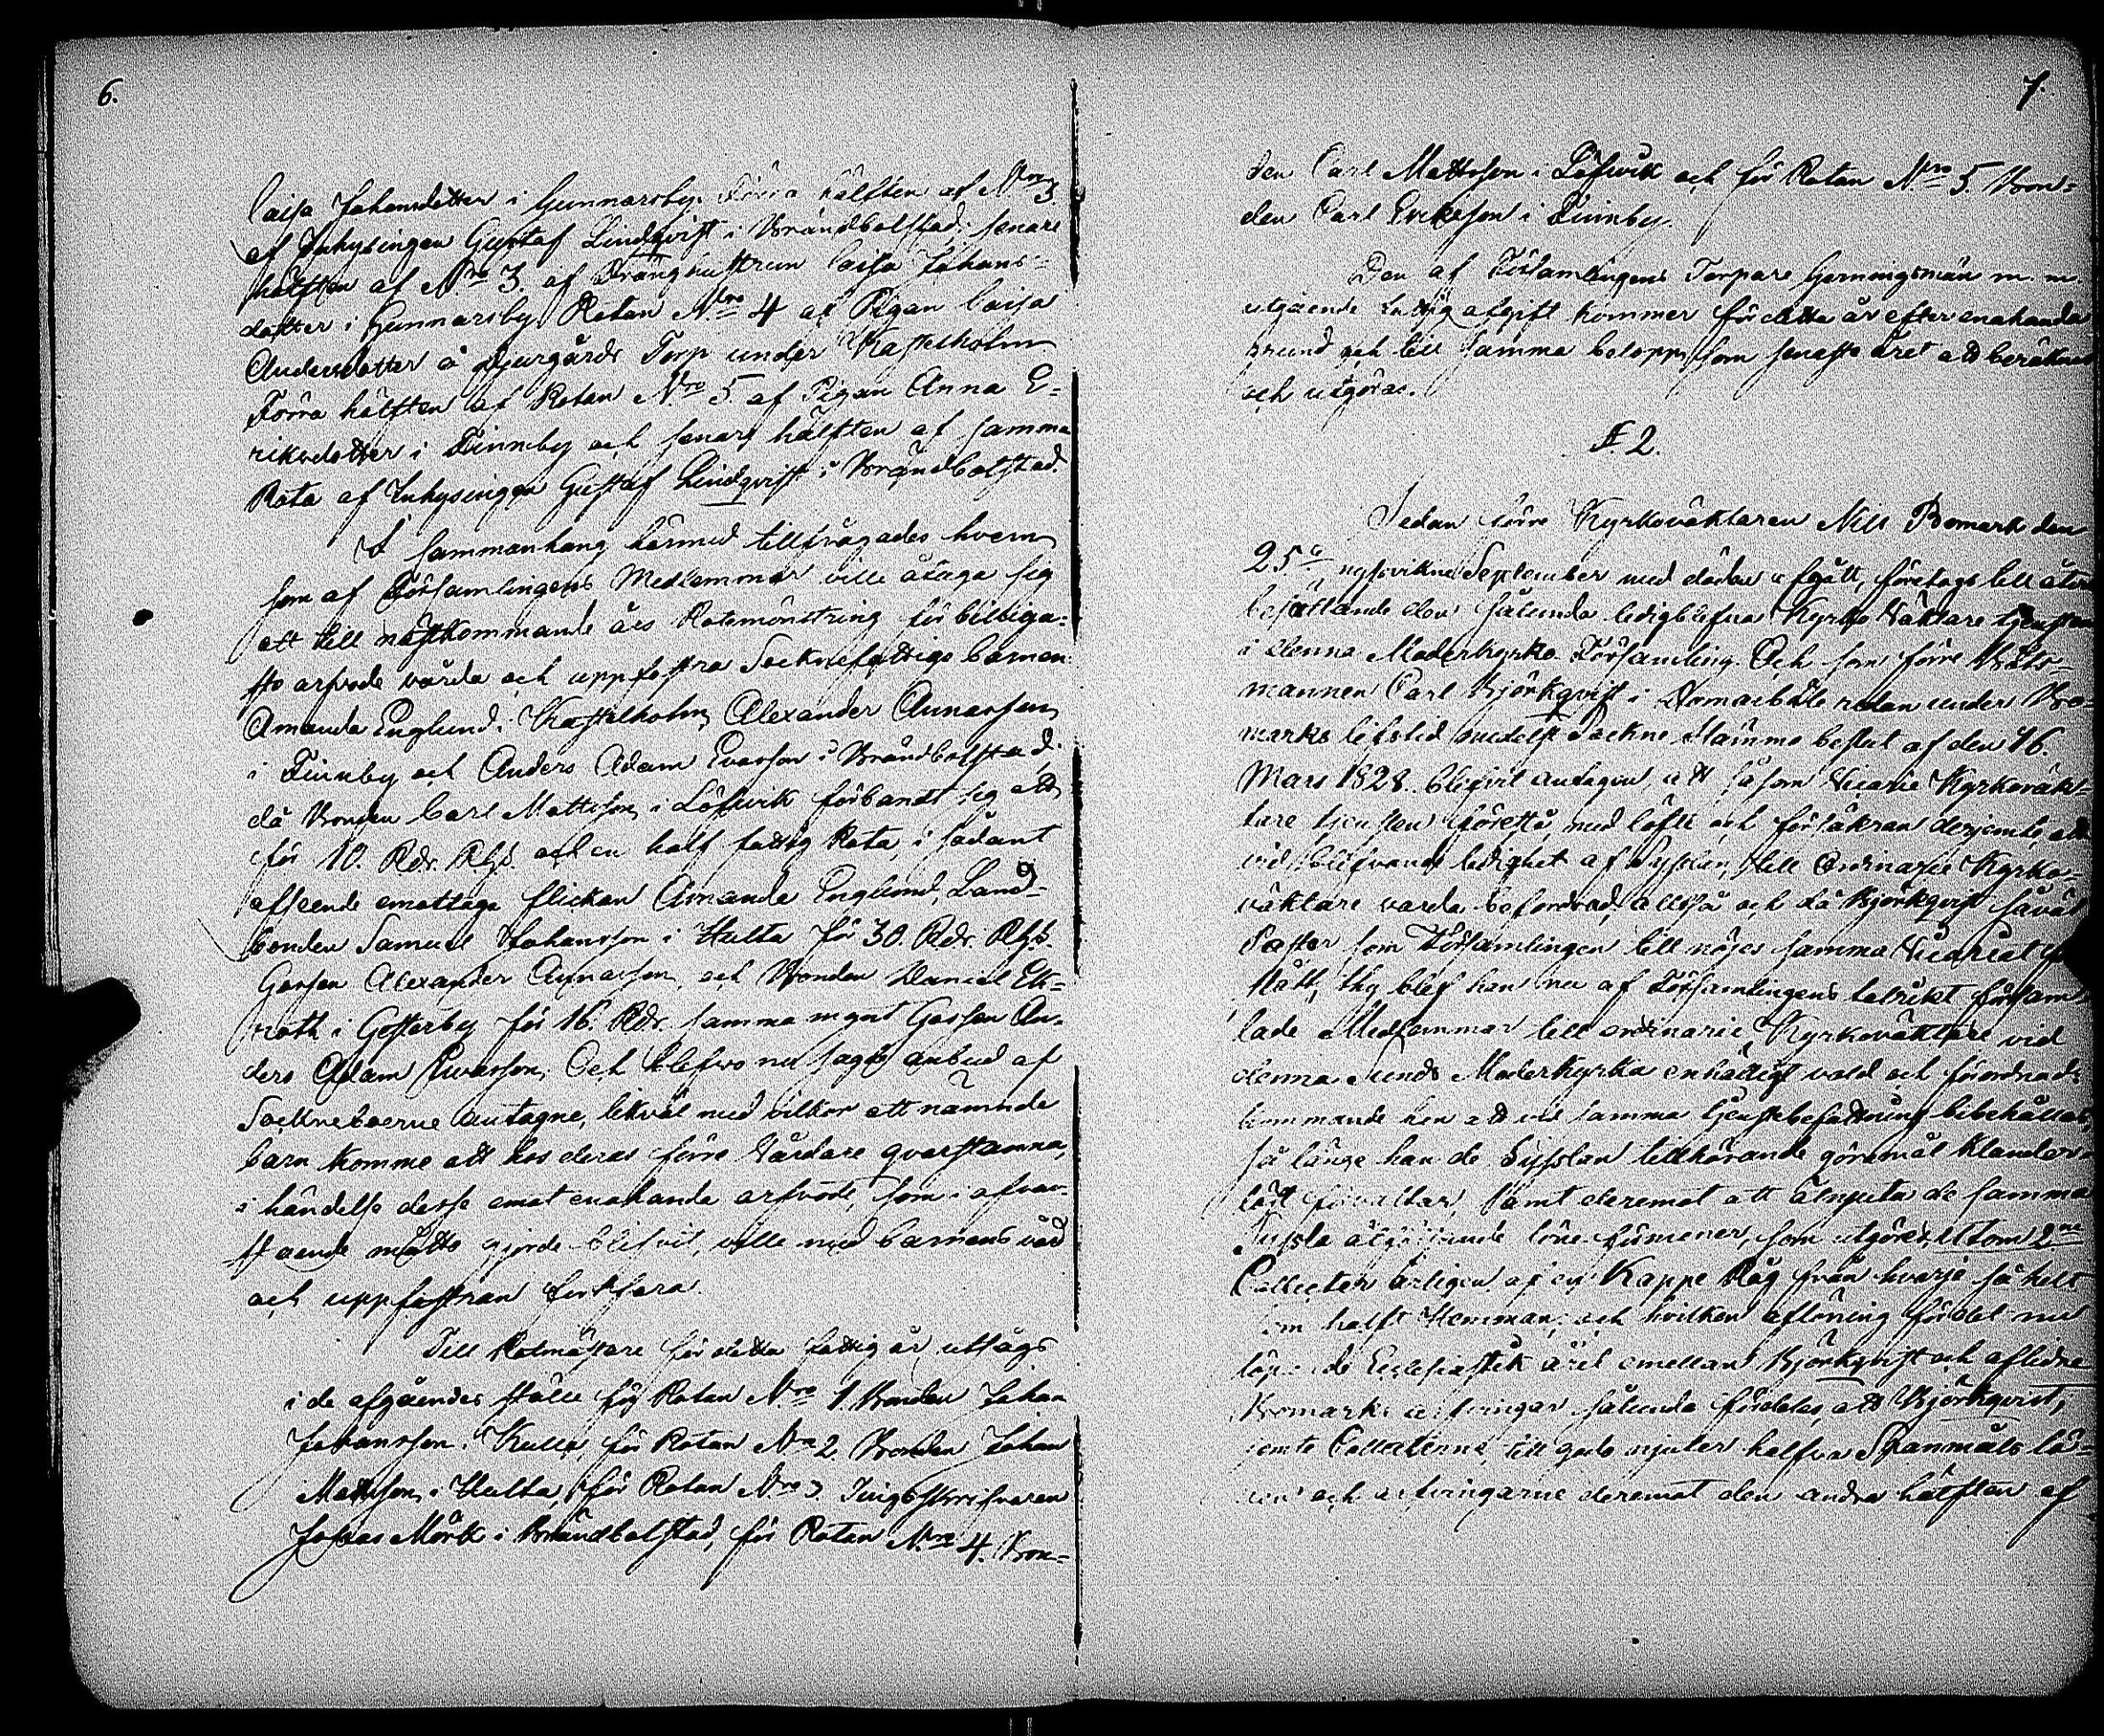 6.
Caisa Johansdotter i Gunnarsby. Förra hälften af Nro 3
af Inhysingen Gustaf Lindqvist i Brändbolstad, senare
hälften af Nro 3. af Dränghustrun Caisa Johans-
dotter i Gunnarsby Rotan Nro 4 af Pigan Caisa
Andersdotter å Djurgårds Torp under Kastelholm
Förra hälften af Rotan Nro 5 af Pigan Anna E-
riksdotter i Finnby och senare hälften af samma
Rota af Inhysingen Gustaf Lindqvist i Brändbolstad.
I sammanhang härmed tillfrågades hvem
som af Församlingens Medlemmar ville åtaga sig
att till nästkommande års Rotemönstring för billiga-
ste arfvode vårda och uppfostra Socknefattige barnen
Amanda Englund i Kastelholm, Alexander Annasson
i Finnby och Anders Adam Evasson i Brändbolstad;
då Bonden Carl Mattsson i Löfwik förbandt sig att
för 10. Rdr. Rgs. och en half fattig Rota, i sådant
afseende emottaga flickan Amanda Englund, Land-
bonden Samuel Johansson i Hulta för 30. Rdr. Rgs.
Gossen Alexander Annasson, och Bonden Daniel Ek-
roth i Gesterby för 16. Rdr. samma mynt Gossen An-
ders Adam Evasson; Och blefvo nu sagde anbud af
Sockneboerne antagne, likväl med vilkor att nämnde
barn komme att hos deras förre Vårdare qvarstanna,
i händelse desse emot enahanda arfvode, som i ofvan-
stående måtto gjorde blifvit, ville med barnens vård
och uppfostran fortfara.
Till Rotmästare för detta fattig år, uttågs
i de afgåendes ställe för Rotan Nro 1 Bonden Johan
Johansson i Kulla, för Rotan Nro 2. Bonden Johan
Mattsson i Hulta, för Rotan Nro 3. Tingsskrifvaren
Joseas Mörk i Brändbolstad, för Rotan Nro 4. Bon-
7.
den Carl Mattsson i Löfwik och för Rotan Nro 5. Bon-
den Carl Ericksson i Finnby.
Den af Församlingens Torpare Gerningsmän m. m.
utgående fattig afgift kommer för detta år efter enahanda
grund och till samma belopp som senaste året att beräknas
och utgöras.
§. 2.
Sedan förre Kyrkoväktaren Nils Bomark den
25te nystvikne September med döden afgått, företogs till åter-
besättande den sålunda ledigblefna Kyrko Väktare tjensten
i denna Moderkyrko Församling. Och som förre Båts-
mannen Carl Björkqvist i Domarböle redan under Bo-
marks lifstid medelst Sockne Stämmo beslut af den 16.
Mars 1828. blifvit antagen, att såsom Vicarie Kyrkoväk-
tare tjensten förestå, med löfte och försäkran derjemte, att
vid blifvande ledighet af Sysslan, till Ordinarie Kyrko-
väktare varda befordrad, alltså och då Björkqvist såväl
Pastor som Församlingen till nöjes samma Vicariat före-
stått, thy blef han nu af Församlingens talrikt försam-
lade Medlemmar till ordinarie Kyrkoväktare vid
denna Sunds Moderkyrka enhälligt vald och förordnad,
kommande han att vid samma tjenstebefattning bibehållas,
så länge han de Sysslan tillhörande göromål klander-
löst förvaltar, samt deremot att åtnjuta de samma
Syssla åtföljande löne förmoner, som utgöres, utom 2ne
Collecter årligen af en Kappe Råg från hvarje så helt
som halft Hemman; och hvilken aflöning för det nu
löpande Ecclesiastik året emellan Björkqvist och aflidne
Bomarks arfvingar sålunda fördelas, att Björkqvist,
jemte Collecterne, till godo njuter halfva Spanmåls lö-
nen och arfvingarne deremot den andra hälften af